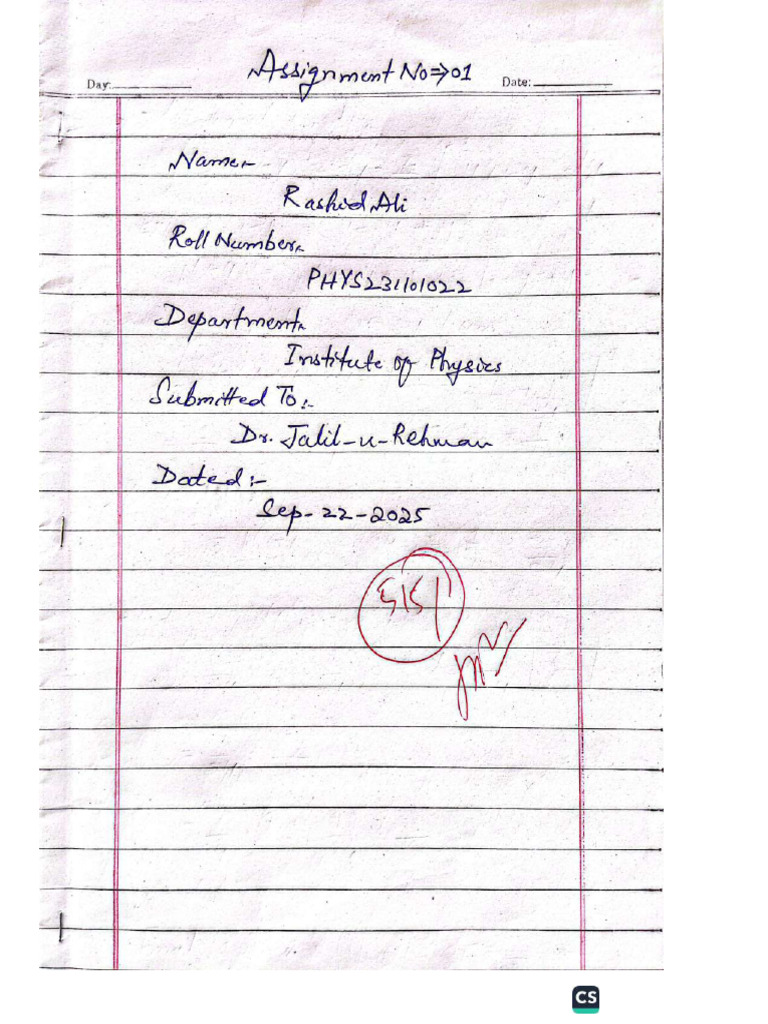 Assignment No⇒01
Day:
Date:
Name:-
Rashid Ali
Roll Number:-
PHYS231101022
Department:-
Institute of Physics
Submitted To:-
Dr. Jalil-u-Rehman
Dated:-
Sep-22-2025
CS